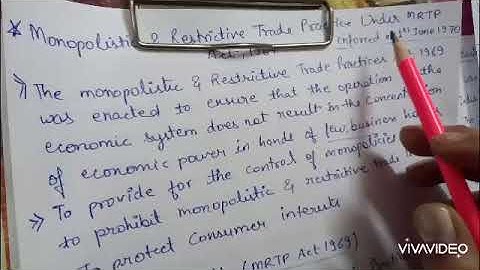 * Monopolistic & Restrictive Trade Practice Under MRTP
Act, 1969
enforced 1st June 1970
→ The monopolistic & Restrictive Trade Practices Act 1969
was enacted to ensure that the operation of the
economic system does not result in the concentration
of economic power in hands of few business
→ To provide for the control of monopolies
to prohibit monopolistic & restrictive trade
To protect consumer interests
(MRTP Act 1969)
VIVAVIDEO